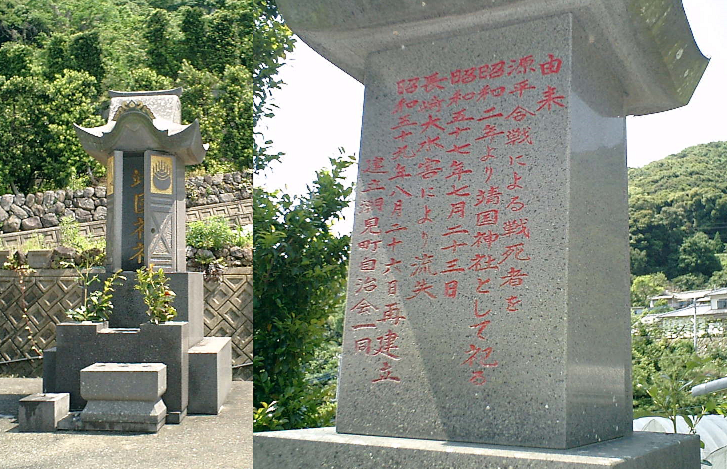 由来
源平合戦による戦死者を
昭和二年より靖国神社として祀る
昭和五十七年七月二十三日
長崎大水害により流失
昭和五十九年八月二十六日再建立
建立潮見町自治会一同